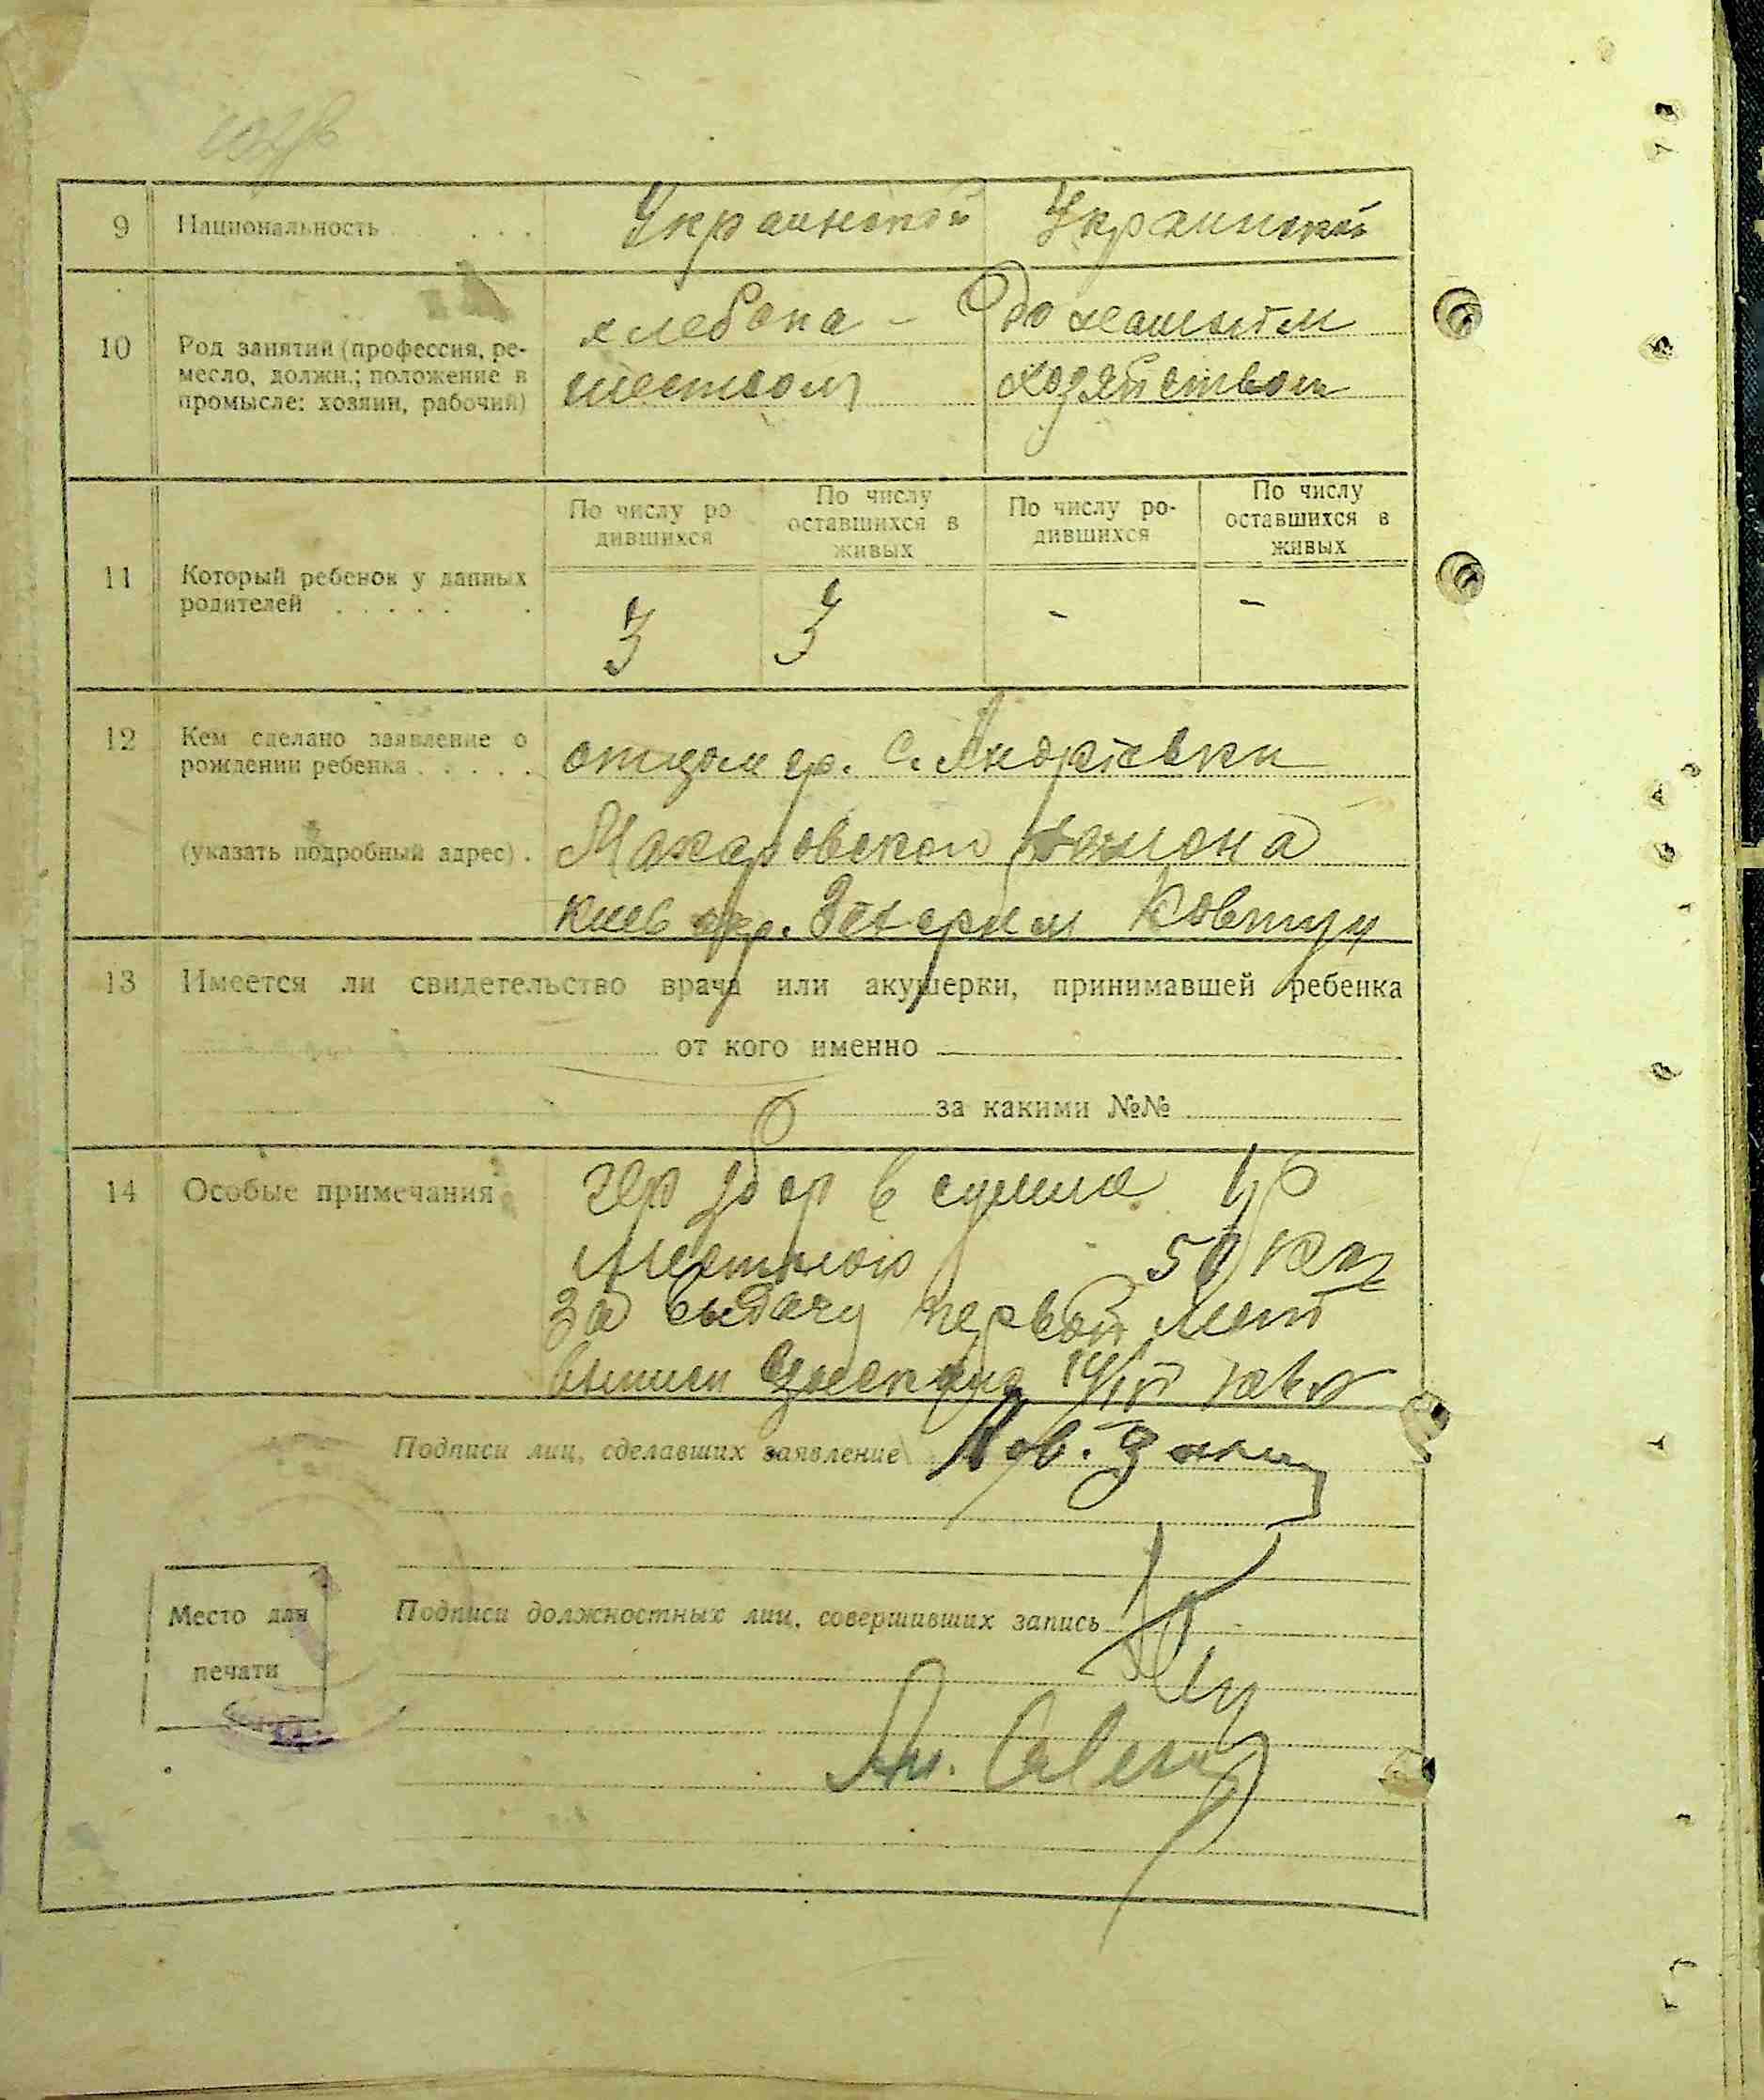 9 Национальность . . . . Украинской Украинской
10 Род занятий (профессия, ре-
месло, должн.; положение в
промысле: хозяин, рабочий)
хлебопа-
шеством
Домашним
хозяйством
По числу ро
дившихся
По числу
оставшихся в
живых
По числу ро-
дившихся
По числу
оставшихся в
живых
11 Который ребенок у данных
родителей . . . . . .
3 3 - -
12 Кем сделано заявление о
рождении ребенка . . . . .
отцом гр. с. Андріевки
(указать подробный адрес) . Макаровского района
Киев окр. Ковтун
13 Имеется ли свидетельство врача или акушерки, принимавшей ребенка
от кого именно
за какими №№
14 Особые примечания
сбор в сумме 1 р
Местного 50 коп
за выдачу первой
выписи
Подписи лиц, сделавших заявление Ков.
Место для
печати
Подписи должностных лиц, совершивших запись